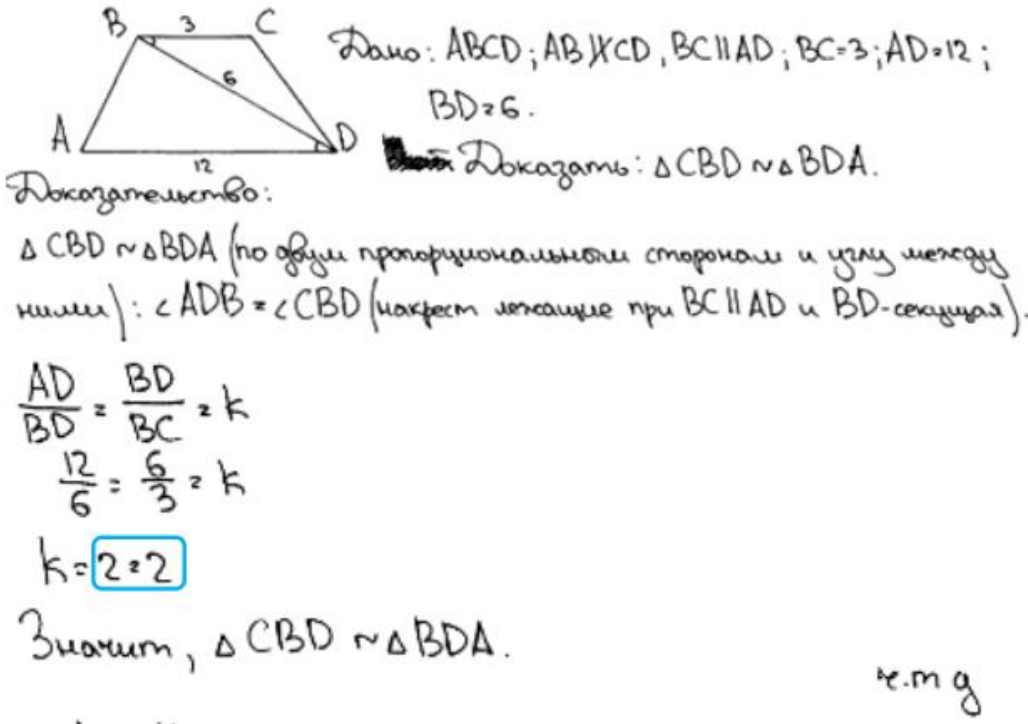 B 3 C
6
A D
12
Дано: ABCD; AB∦CD, BC||AD; BC=3; AD=12;
BD=6.
Доказать: △CBD ~ △BDA.
Доказательство:
△CBD ~ △BDA (по двум пропорциональным сторонам и углу между
ними): ∠ADB = ∠CBD (накрест лежащие при BC || AD и BD-секущая).
AD/BD = BD/BC = k
12/6 = 6/3 = k
k = 2 = 2
Значит, △CBD ~ △BDA.
ч.т д